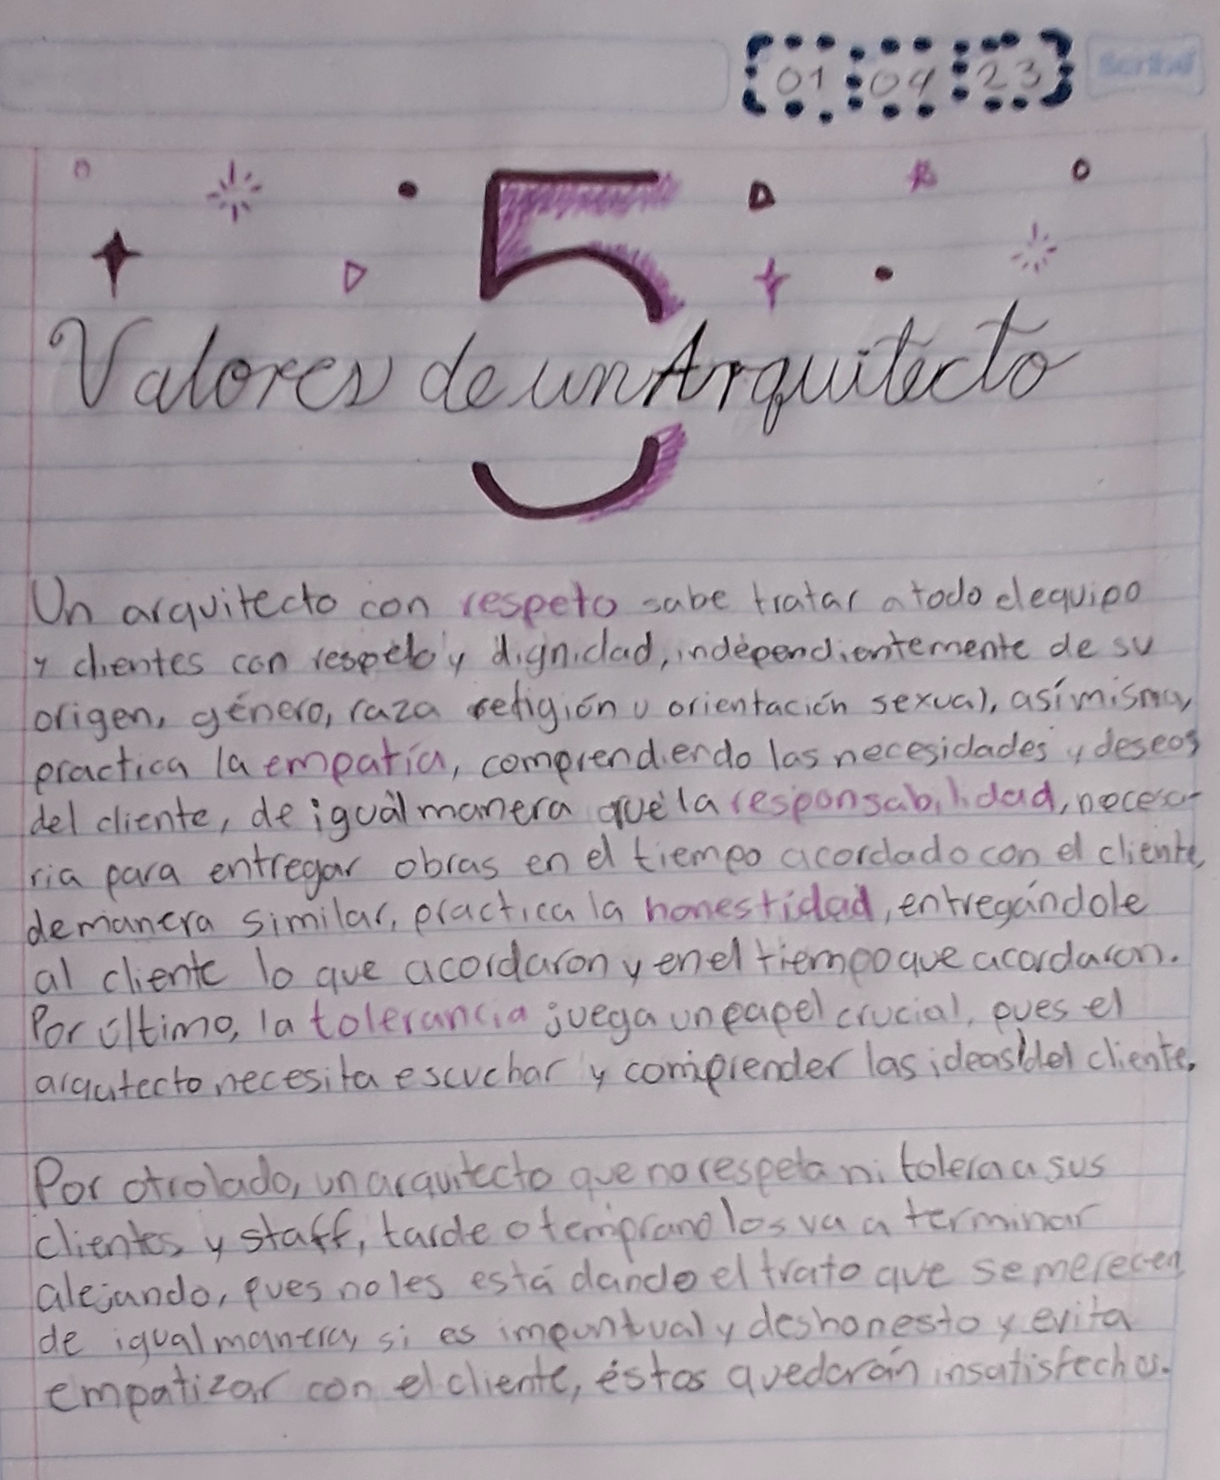 01 04 23
Scribe
5
Valores de un Arquitecto
Un arquitecto con respeto sabe tratar a todo el equipo
y clientes con respeto y dignidad, independientemente de su
origen, género, raza religión u orientación sexual, así mismo,
practica la empatía, comprendiendo las necesidades y deseos
del cliente, de igual manera que la responsabilidad, necesa-
ria para entregar obras en el tiempo acordado con el cliente,
de manera similar, practica la honestidad, entregándole
al cliente lo que acordaron y en el tiempo que acordaron.
Por último, la tolerancia juega un papel crucial, pues el
arqutecto necesita escuchar y comprender las ideas del cliente.
Por otro lado, un arquitecto que no respeta ni tolera a sus
clientes y staff, tarde o temprano los va a terminar
alejando, pues no les está dando el trato que se merecen,
de igual manera, si es impuntual y deshonesto y evita
empatizar con el cliente, éstos quedarán insatisfechos.